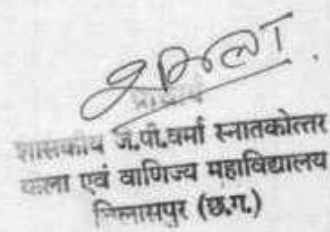 शासकीय जे.पी.वर्मा स्नातकोत्तर
कला एवं वाणिज्य महाविद्यालय
बिलासपुर (छ.ग.)